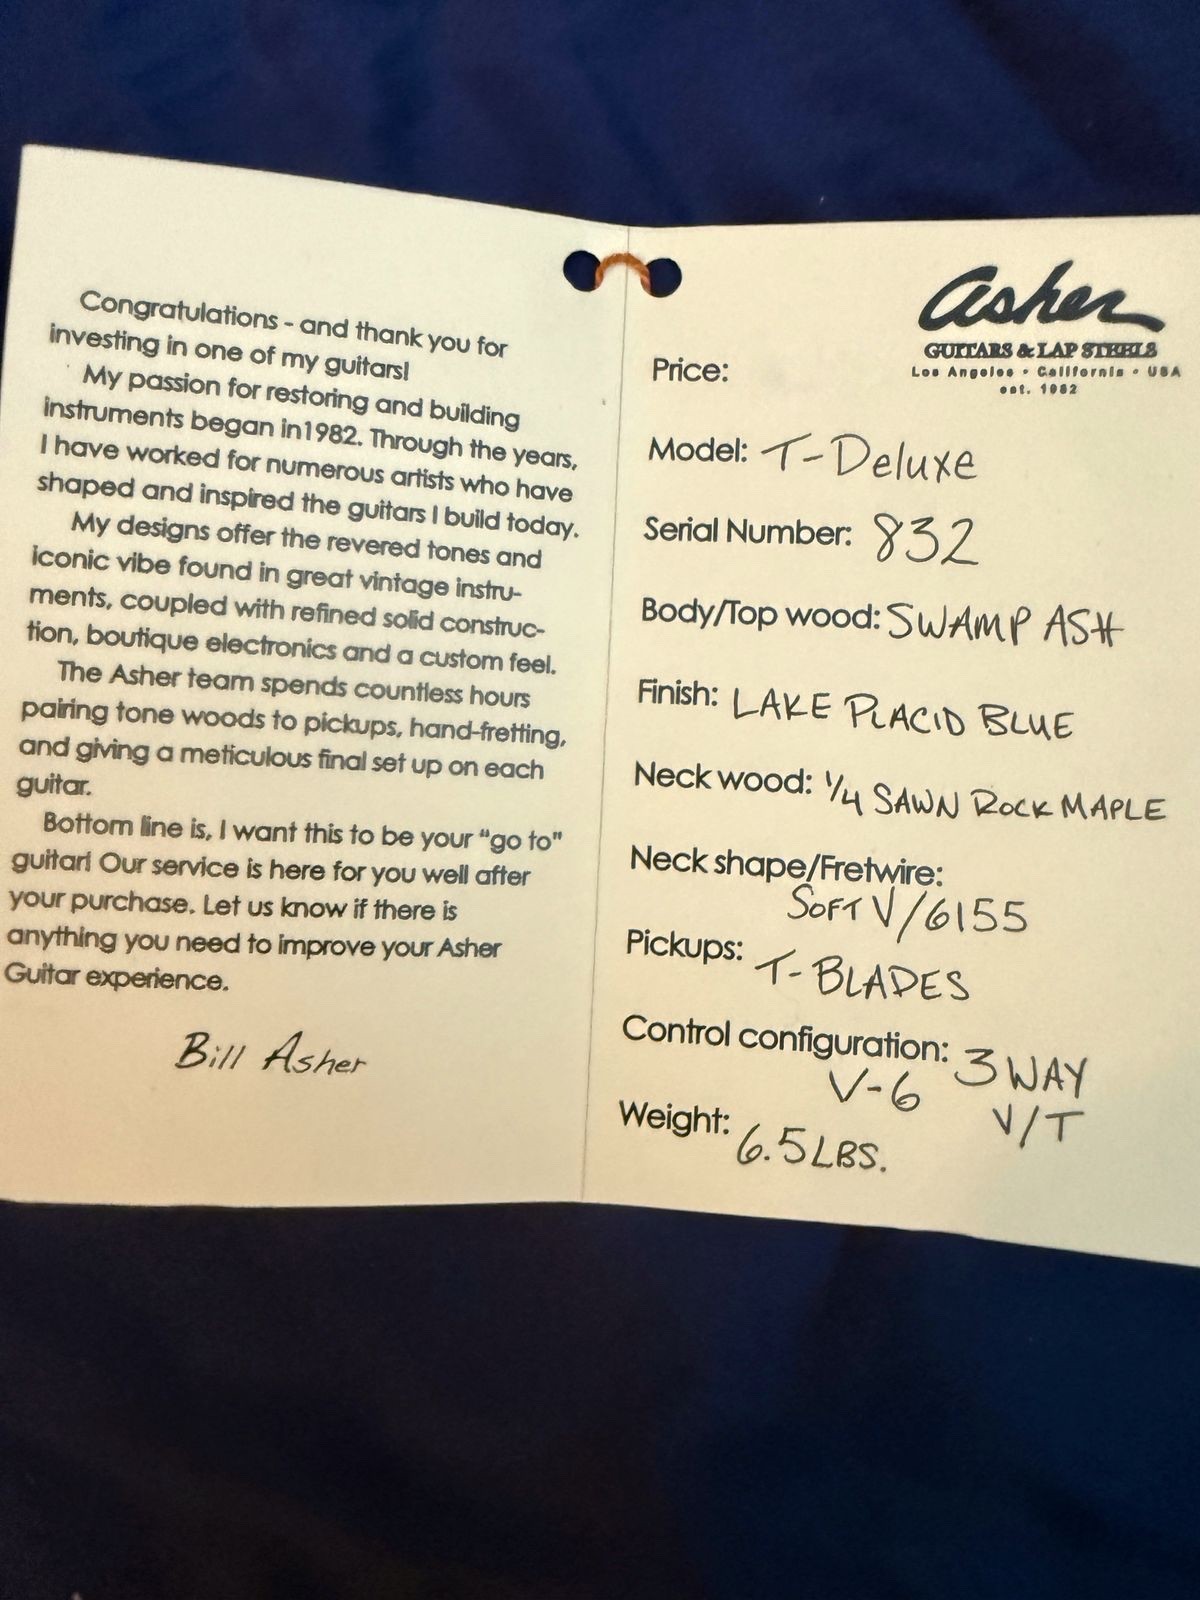 Congratulations - and thank you for
investing in one of my guitars!
My passion for restoring and building
instruments began in1982. Through the years,
I have worked for numerous artists who have
shaped and inspired the guitars I build today.
My designs offer the revered tones and
iconic vibe found in great vintage instru-
ments, coupled with refined solid construc-
tion, boutique electronics and a custom feel.
The Asher team spends countless hours
pairing tone woods to pickups, hand-fretting,
and giving a meticulous final set up on each
guitar.
Bottom line is, I want this to be your “go to”
guitar! Our service is here for you well after
your purchase. Let us know if there is
anything you need to improve your Asher
Guitar experience.
Bill Asher
asher
GUITARS & LAP STEELS
Los Angeles • California • USA
est. 1982
Price:
Model: T-Deluxe
Serial Number: 832
Body/Top wood: SWAMP ASH
Finish: LAKE PLACID BLUE
Neck wood: 1/4 SAWN ROCK MAPLE
Neck shape/Fretwire:
SOFT V/6155
Pickups: T-BLADES
Control configuration: 3 WAY
V-6 V/T
Weight: 6.5 LBS.